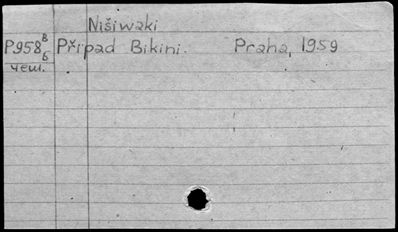 Nišiwaki
P958 8/6 Případ Bikini. Praha, 1959
чеш.